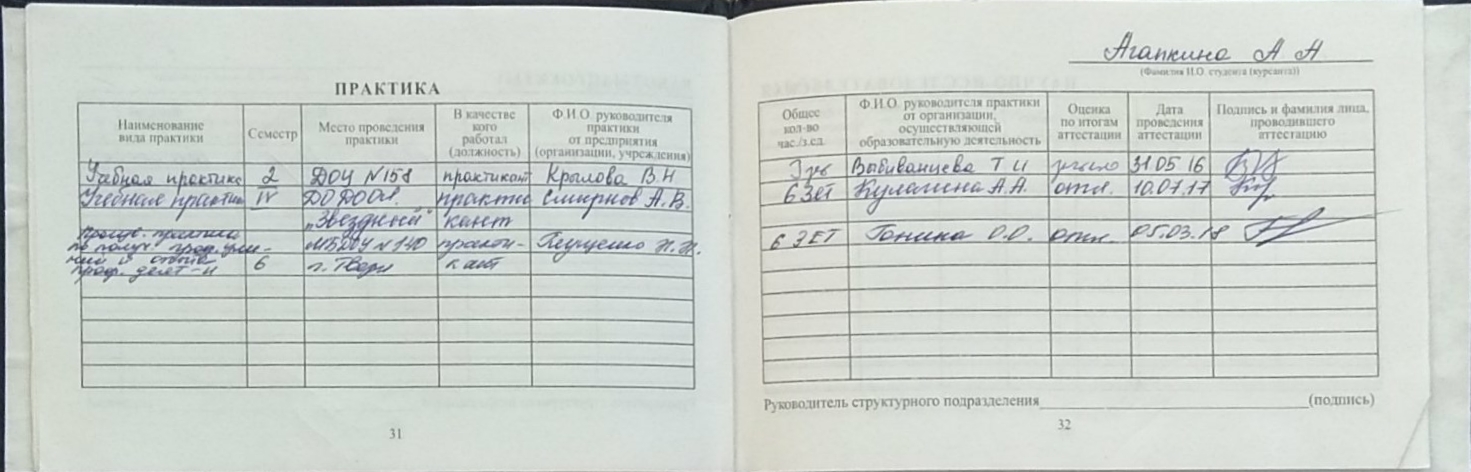 ПРАКТИКА
Наименование вида практики
Семестр
Место проведения практики
В качестве кого работал (должность)
Ф.И.О. руководителя практики от предприятия (организации, учреждения)
Учебная практика 2 ДОУ №158 практикант Крылова В.Н
Учебная практика IV ДОДООЛ практи Смирнов А.В.
"Звездный" кант
произв. практика
по получ. проф. уме- МБДОУ №140 практи-
ний и опыта 6 г. Твери кант
проф. деят-и
31
Агапкина А А
(Фамилия И.О. студента (курсанта))
Общее кол-во час./з.ед.
Ф.И.О. руководителя практики от организации, осуществляющей образовательную деятельность
Оценка по итогам аттестации
Дата проведения аттестации
Подпись и фамилия лица, проводившего аттестацию
Т И 31.05 16
6 ЗЕТ А.А. отл. 10.07.17
6 ЗЕТ Гонина О.О. отл. 05.03.18
Руководитель структурного подразделения (подпись)
32